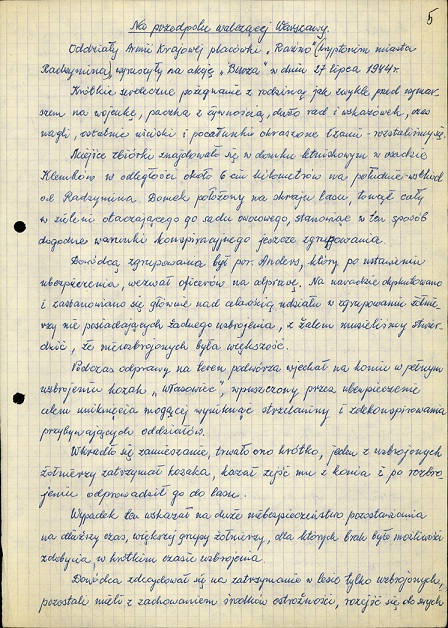 5
Na przedpolu walczącej Warszawy.
Oddziały Armii Krajowej placówki „ (kryptonim miasta
Radzymina) wyruszyły na akcję „Burza” w dniu 27 lipca 1944 r.
Krótkie serdeczne pożegnanie z rodziną jak zwykle przed wymar-
szem na wojenkę, paczka z żywnością, dużo rad i wskazówek, oraz
ostatnie uściski i pocałunki okraszone łzami - rozstaliśmy się.
Miejsce zbiórki znajdowało się w domku letniskowym w osadzie
w odległości około 6 ciu kilometrów na południe-wschód
od Radzymina. Domek położony na skraju lasu, tonął cały
w zieleni otaczającego go sadu owocowego, stanowiąc w ten sposób
dogodne warunki konspiracyjnego jeszcze zgrupowania.
Dowódcą zgrupowania był por. Anders, który po ustawieniu
ubezpieczenia, wezwał oficerów na odprawę. Na naradzie dyskutowano
i zastanawiano się głównie nad celowością udziału w zgrupowaniu żołnie-
rzy nie posiadających żadnego uzbrojenia, z żalem musieliśmy stwier-
dzić, że nieuzbrojonych była większość.
Podczas odprawy na teren podwórza wjechał na koniu w pełnym
uzbrojeniu kozak „własowiec”, wpuszczony przez ubezpieczenie
celem uniknięcia mogącej wyniknąć strzelaniny i zdekonspirowania
przybywających oddziałów.
Wkradło się zamieszanie, trwało ono krótko, jeden z uzbrojonych
żołnierzy zatrzymał kozaka, kazał zejść mu z konia i po rozbro-
jeniu odprowadził go do lasu.
Wypadek ten wskazał na duże niebezpieczeństwo pozostawania
na dłuższy czas, większej grupy żołnierzy, dla których brak było możliwości
zdobycia, w krótkim czasie uzbrojenia.
Dowódca zdecydował się na zatrzymanie w lesie tylko uzbrojonych,
pozostali mieli z zachowaniem środków ostrożności, rozejść się do swych